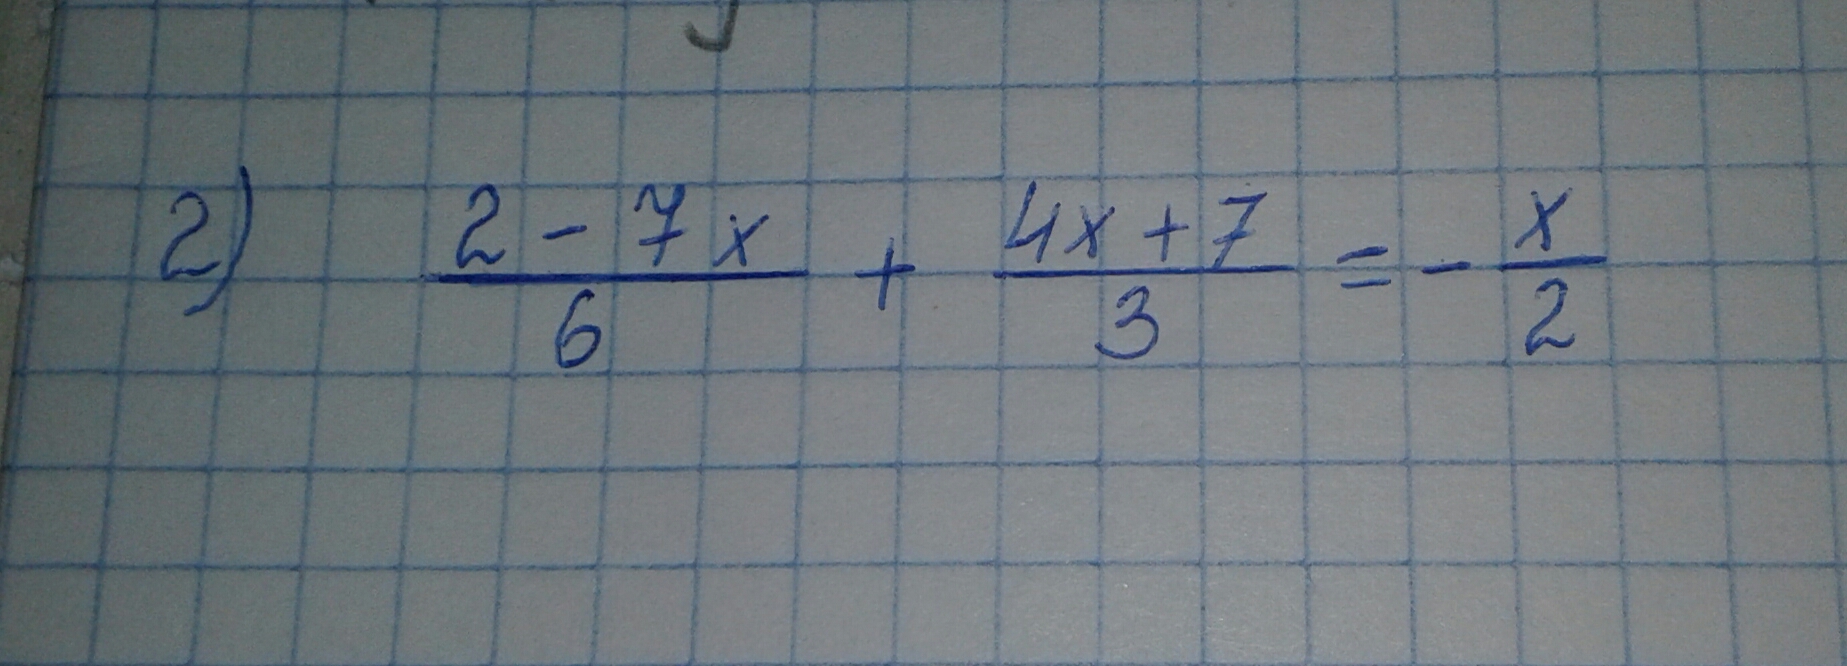 2) \frac{2 - 7x}{6} + \frac{4x + 7}{3} = - \frac{x}{2}